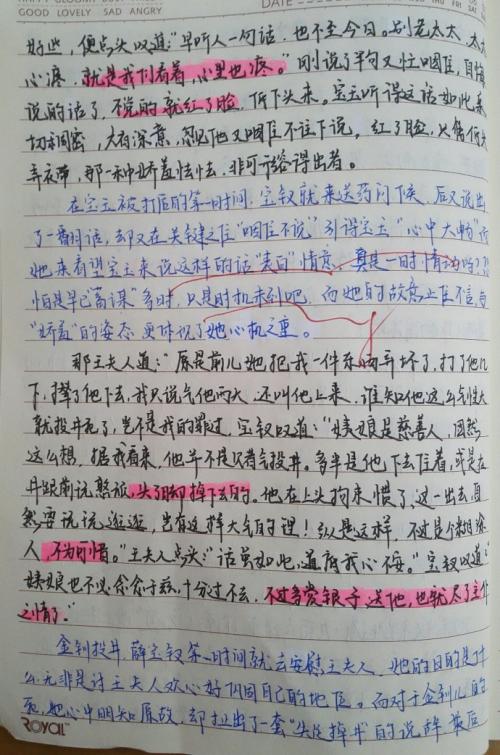 HAPPY GLOOMY BUSY TIRED
GOOD LOVELY SAD ANGRY
DATE
好些，便点头叹道："早听人一句话，也不至今日。别说老太太、太太
心疼，就是我们看着，心里也疼。"刚说了半句又忙咽住，自悔
说的话了，不觉的就红了脸，低下头来。宝玉听得这话如此亲
切稠密，大有深意，忽见他又咽住不往下说，红了脸，只管
弄衣带，那一种娇羞怯怯，非可形容得出者。
在宝玉被打后的第一时间，宝钗就来送药问候，后又说出
了一番对话，却又在关键之住"咽住不说"引得宝玉"心中大畅"
她来看望宝玉来说这样的话"表白"情意，真是一时情动吗？恐
怕是早已"蓄谋"多时，只是时机未到吧，而她的故意止住不言与
"娇羞"的姿态更体现了她心机之重。
那王夫人道："原是前儿她把我一件东西弄坏了，打了他几
下，撵了他下去，我只说气他两天，还叫他上来，谁知他这么气性大
就投井死了，岂不是我的罪过，宝钗叹道："姨娘是慈善人，固然
这么想，据我看来，他并不是只着气投井。多半是他下去住着，或是在
井跟前说憨玩，失了脚掉下去的。他在上头拘束惯了，这一出去自
然要说说逛逛，岂有这样大气的理！纵是这样，不过是个糊涂
人，不为可惜。"王夫人点头："话虽如此，道底我心不安。"宝钗叹道：
姨娘也不必念念于兹，十分过不去，不过多赏银子送他，也就尽了主仆
之情了。"
金钏投井，薛宝钗第一时间就去安慰王夫人，她的目的是什
么无非是讨王夫人欢心好巩固自己的地位。而对于金钏儿的
死，她心中明知原故，却扯出了一套"失足掉井"的说辞，最后
ROYAL